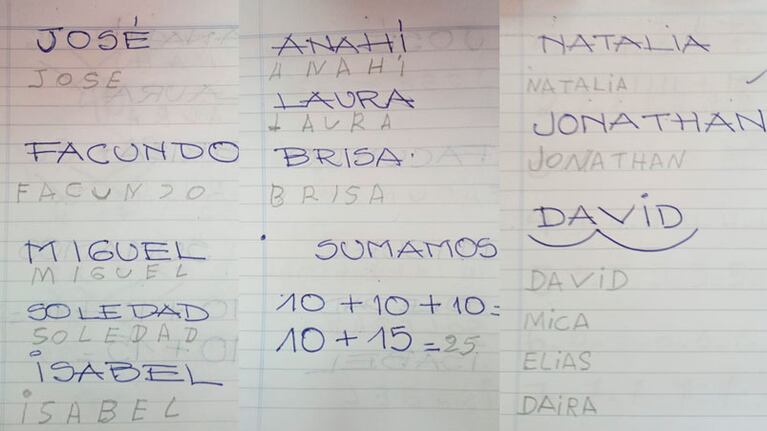 JOSÉ
JOSE
FACUNDO
FACUNDO
MIGUEL
MIGUEL
SOLEDAD
SOLEDAD
iSABEL
iSABEL
ANAHÍ
ANAHÍ
LAURA
LAURA
BRISA.
BRISA
SUMAMOS
10 + 10 + 10 =
10 + 15 = 25
NATALiA
NATALiA
JONATHAN
JONATHAN
DAViD
DAViD
MiCA
ELiAS
DAiRA